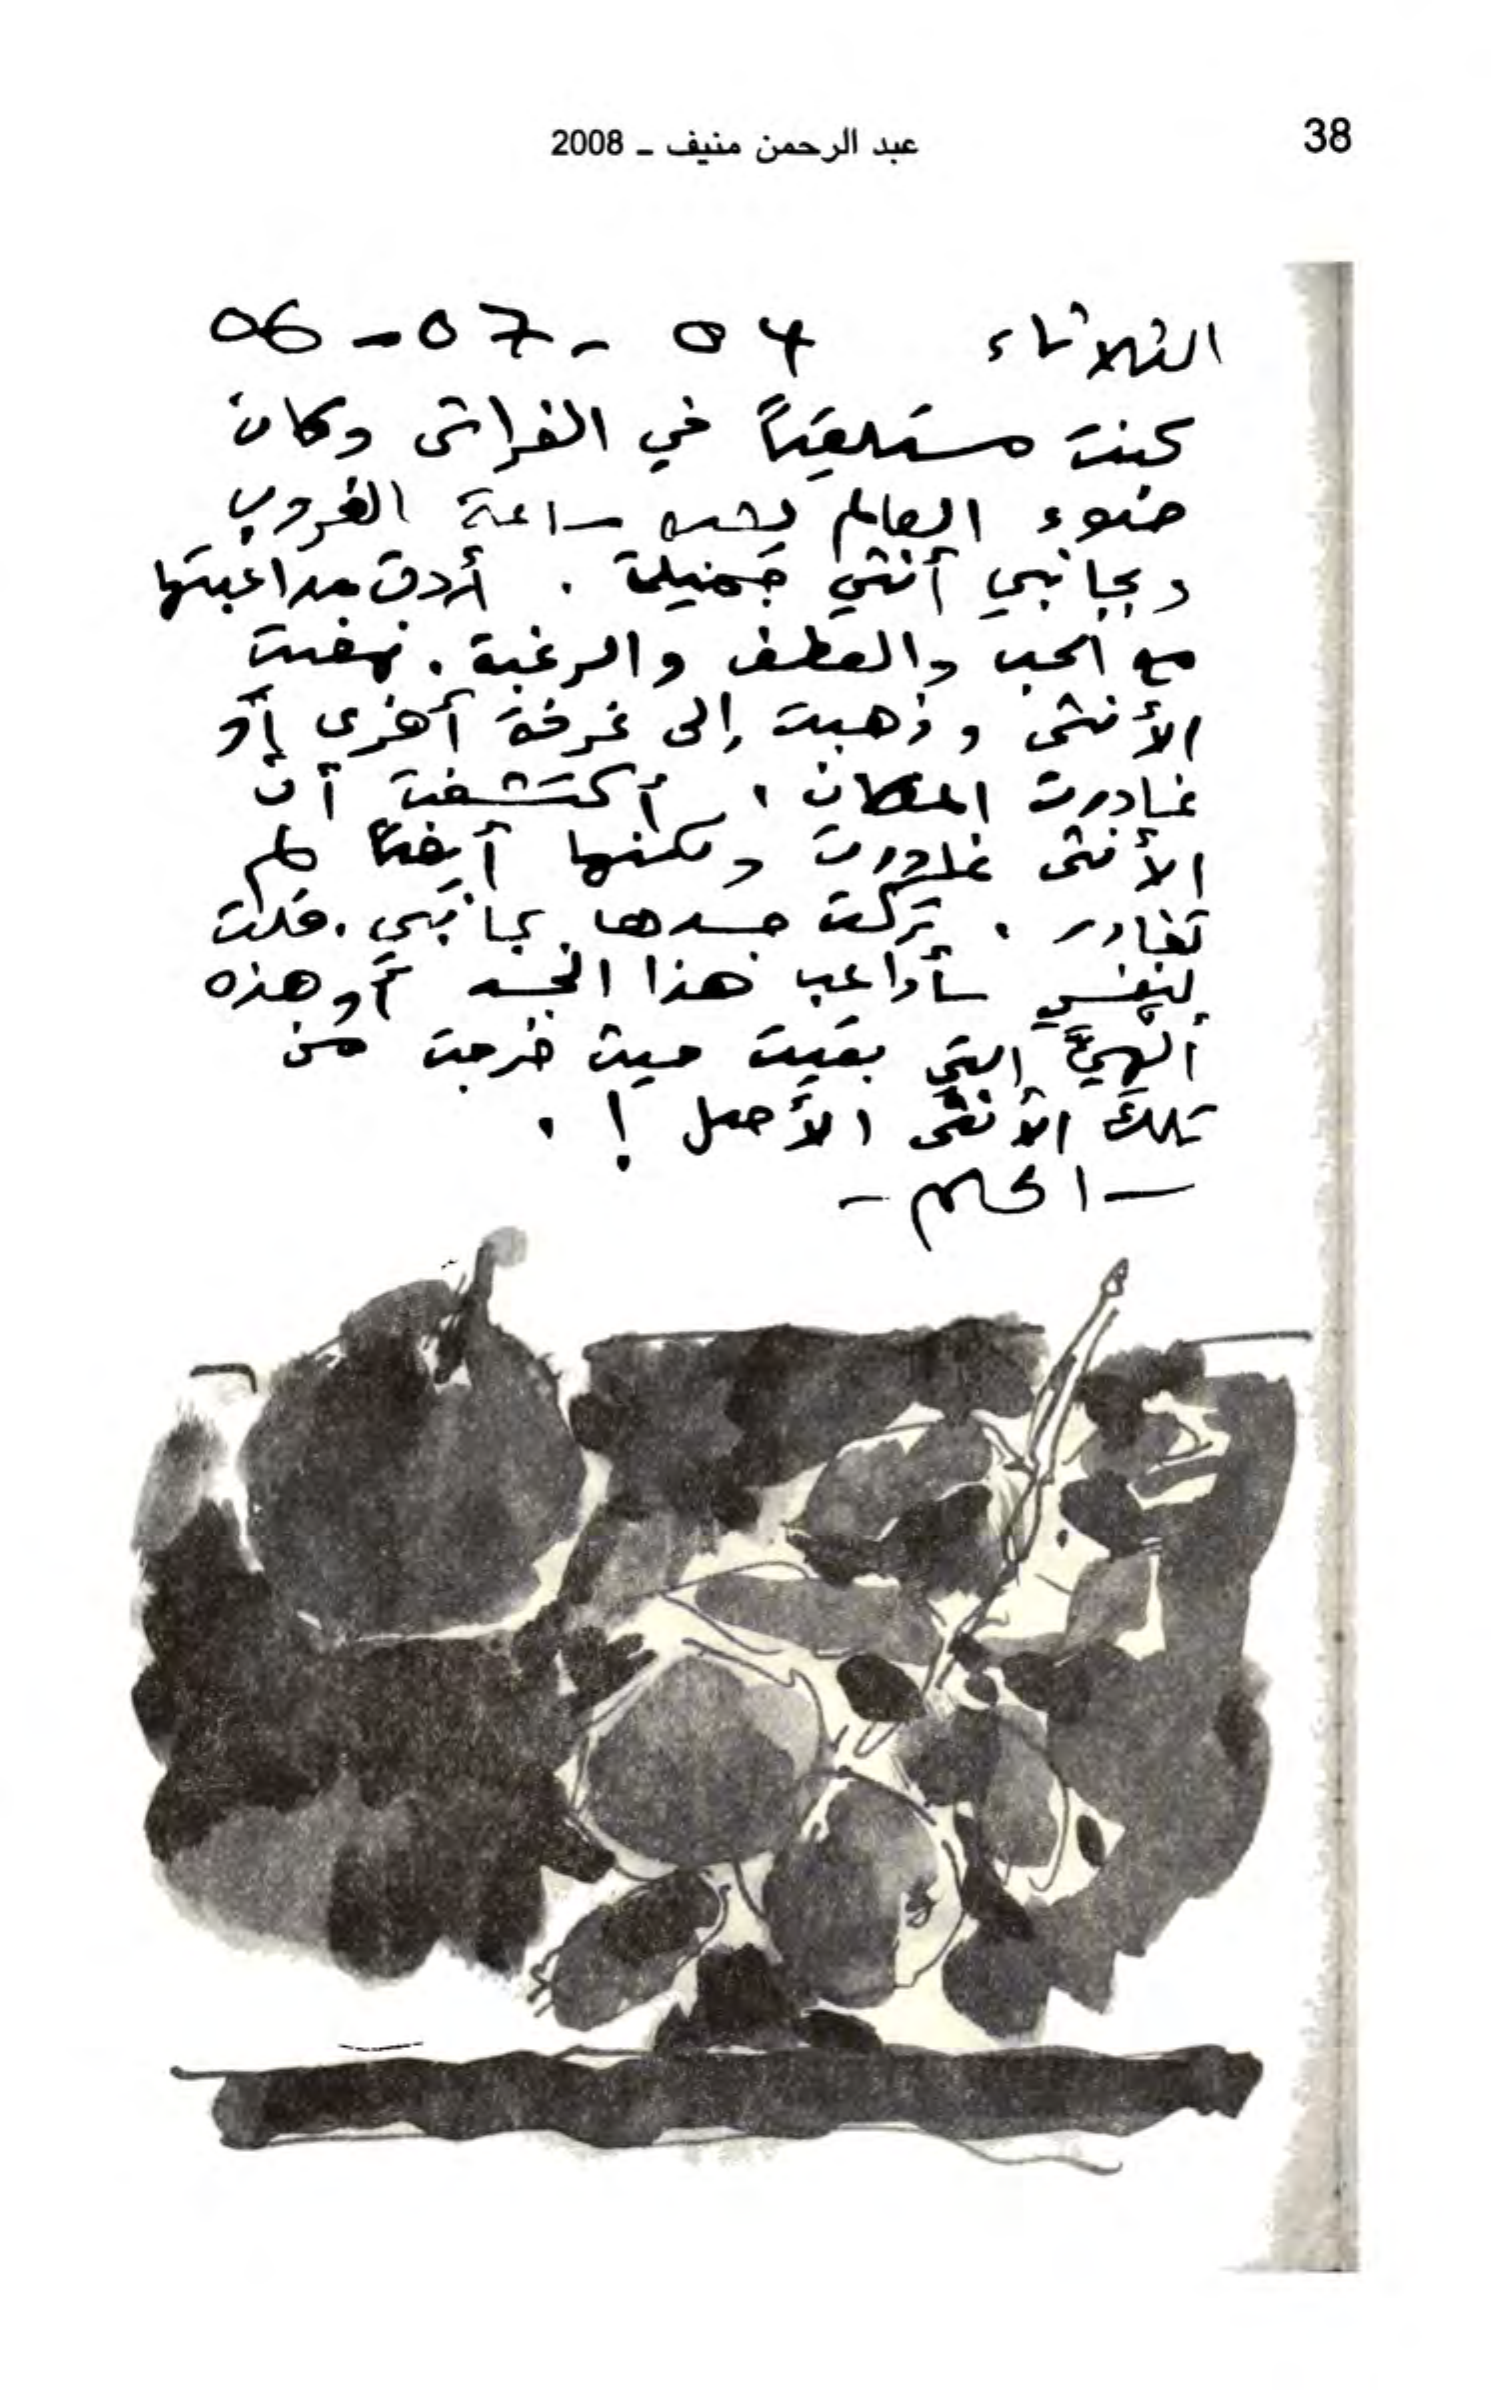 38
عبد الرحمن منيف ـ 2008
الثلاثاء 04 - 07 - 06
كنت مستلقياً في الفراش وكان
ضوء العالم يشبه ساعة الغروب
وبجانبي أنثى جميلة . أردت مداعبتها
مع الحب والعطف والرغبة . نهضت
الأنثى وذهبت إلى غرفة أخرى أو
غادرت المكان . أكتشفت أن
الأنثى غادرت ولكنها أيضاً لم
تغادر . تركت جسدها بجانبي . قلت
لنفسي سأداعب هذا الجسد أو هذه
التي بقيت حيث خرجت من
تلك الأنثى الأصل ! .
- الحلم -